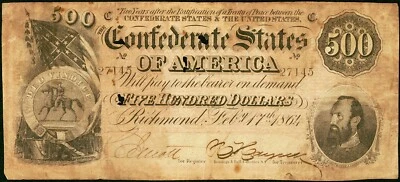 500 C Two Years after the Ratification of a Treaty of Peace between the C
CONFEDERATE STATES & THE UNITED STATES,
Confederate States
500
OF AMERICA
27145 27145
Will pay to the bearer on demand
FIVE HUNDRED DOLLARS
Richmond, Feby. 17th 1864
for Register
for Treasurer